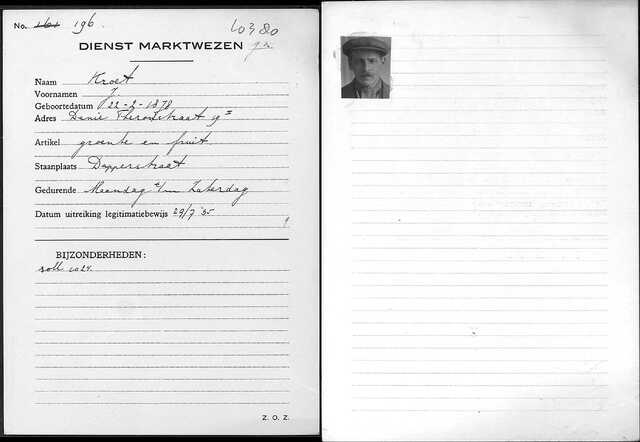 No. 161 196 40380
DIENST MARKTWEZEN
Naam Kroet
Voornamen J.
Geboortedatum 22-2-1878
Adres Danie Theronstraat 9
Artikel groente en fruit
Staanplaats Dapperstraat
Gedurende Maandag t/m Zaterdag
Datum uitreiking legitimatiebewijs 29/7 '35
BIJZONDERHEDEN:
Z. O. Z.